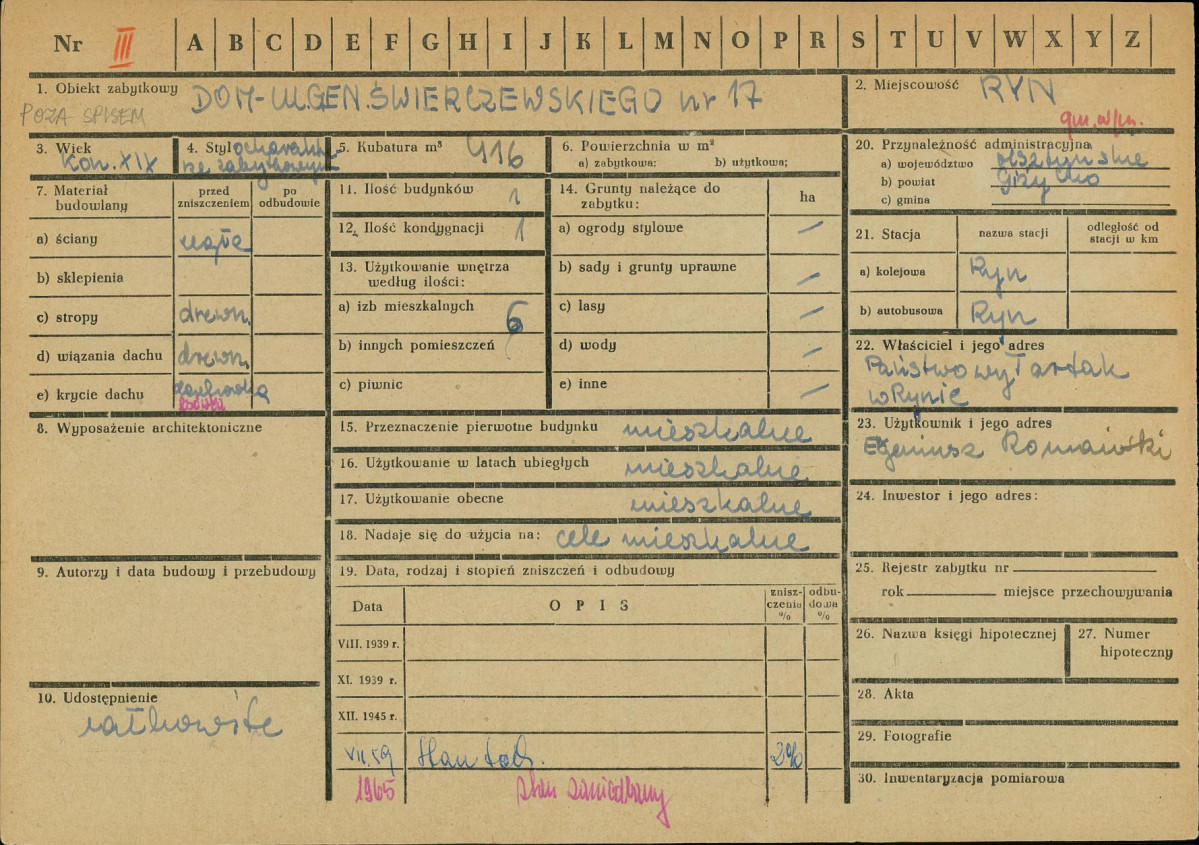 Nr III A B C D E F G H I J K L M N O P R S T U V W X Y Z
1. Obiekt zabytkowy DOM-UL.GEN.ŚWIERCZEWSKIEGO nr 17
POZA SPISEM
2. Miejscowość RYN
gm. w/m.
3. Wiek
kon. XIX
4. Styl o charakt.
ze zabytkowym
5. Kubatura m³ 416
6. Powierzchnia w m²
a) zabytkowa: b) użytkowa;
7. Materiał budowlany
przed zniszczeniem
po odbudowie
a) ściany cegła
b) sklepienia
c) stropy drewn.
d) wiązania dachu drewn.
e) krycie dachu dachówka
8. Wyposażenie architektoniczne
9. Autorzy i data budowy i przebudowy
10. Udostępnienie
całkowite
11. Ilość budynków 1
12. Ilość kondygnacji 1
13. Użytkowanie wnętrza
według ilości:
a) izb mieszkalnych 6
b) innych pomieszczeń
c) piwnic
14. Grunty należące do
zabytku:
ha
a) ogrody stylowe
b) sady i grunty uprawne —
c) lasy —
d) wody —
e) inne —
15. Przeznaczenie pierwotne budynku mieszkalne
16. Użytkowanie w latach ubiegłych mieszkalne
17. Użytkowanie obecne mieszkalne
18. Nadaje się do użycia na: cele mieszkalne
19. Data, rodzaj i stopień zniszczeń i odbudowy
Data OPIS znisz-
czenia
% odbu-
dowa
%
VIII. 1939 r.
XI. 1939 r.
XII. 1945 r.
VII.59 Stan dob. 2%
1965 stan zaniedbany
20. Przynależność administracyjna
a) województwo olsztyńskie
b) powiat Giżycko
c) gmina
21. Stacja nazwa stacji odległość od
stacji w km
a) kolejowa Ryn
b) autobusowa Ryn
22. Właściciel i jego adres
Państwowy Tartak
w Rynie
23. Użytkownik i jego adres
Eugeniusz
24. Inwestor i jego adres:
25. Rejestr zabytku nr
rok miejsce przechowywania
26. Nazwa księgi hipotecznej
27. Numer
hipoteczny
28. Akta
29. Fotografie
30. Inwentaryzacja pomiarowa